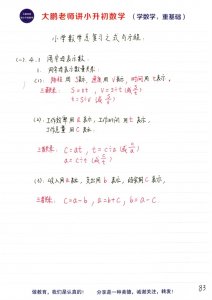 大鹏老师讲小升初数学（学数学，重基础）
小学数学总复习之式与方程
(二) 4.1 用字母表示数
1. 用字母表示数量关系：
(1) 路程用S表示，速度用V表示，时间用t表示，
三者关系：S=vt V=s÷t (或 s/t)
t=s÷v (或 s/v)
(2) 工作效率用a表示，工作时间用t表示，
工作总量用C表示，
三者关系：C=at，t=c÷a (或 c/a)
a=c÷t (或 c/t)
(3) 收入用a表示，支出用b表示，结余用C表示，
三者关系：C=a-b，a=b+c，b=a-c
83
做教育，我们是认真的！ 分享是一种美德，诚谢关注，转发！